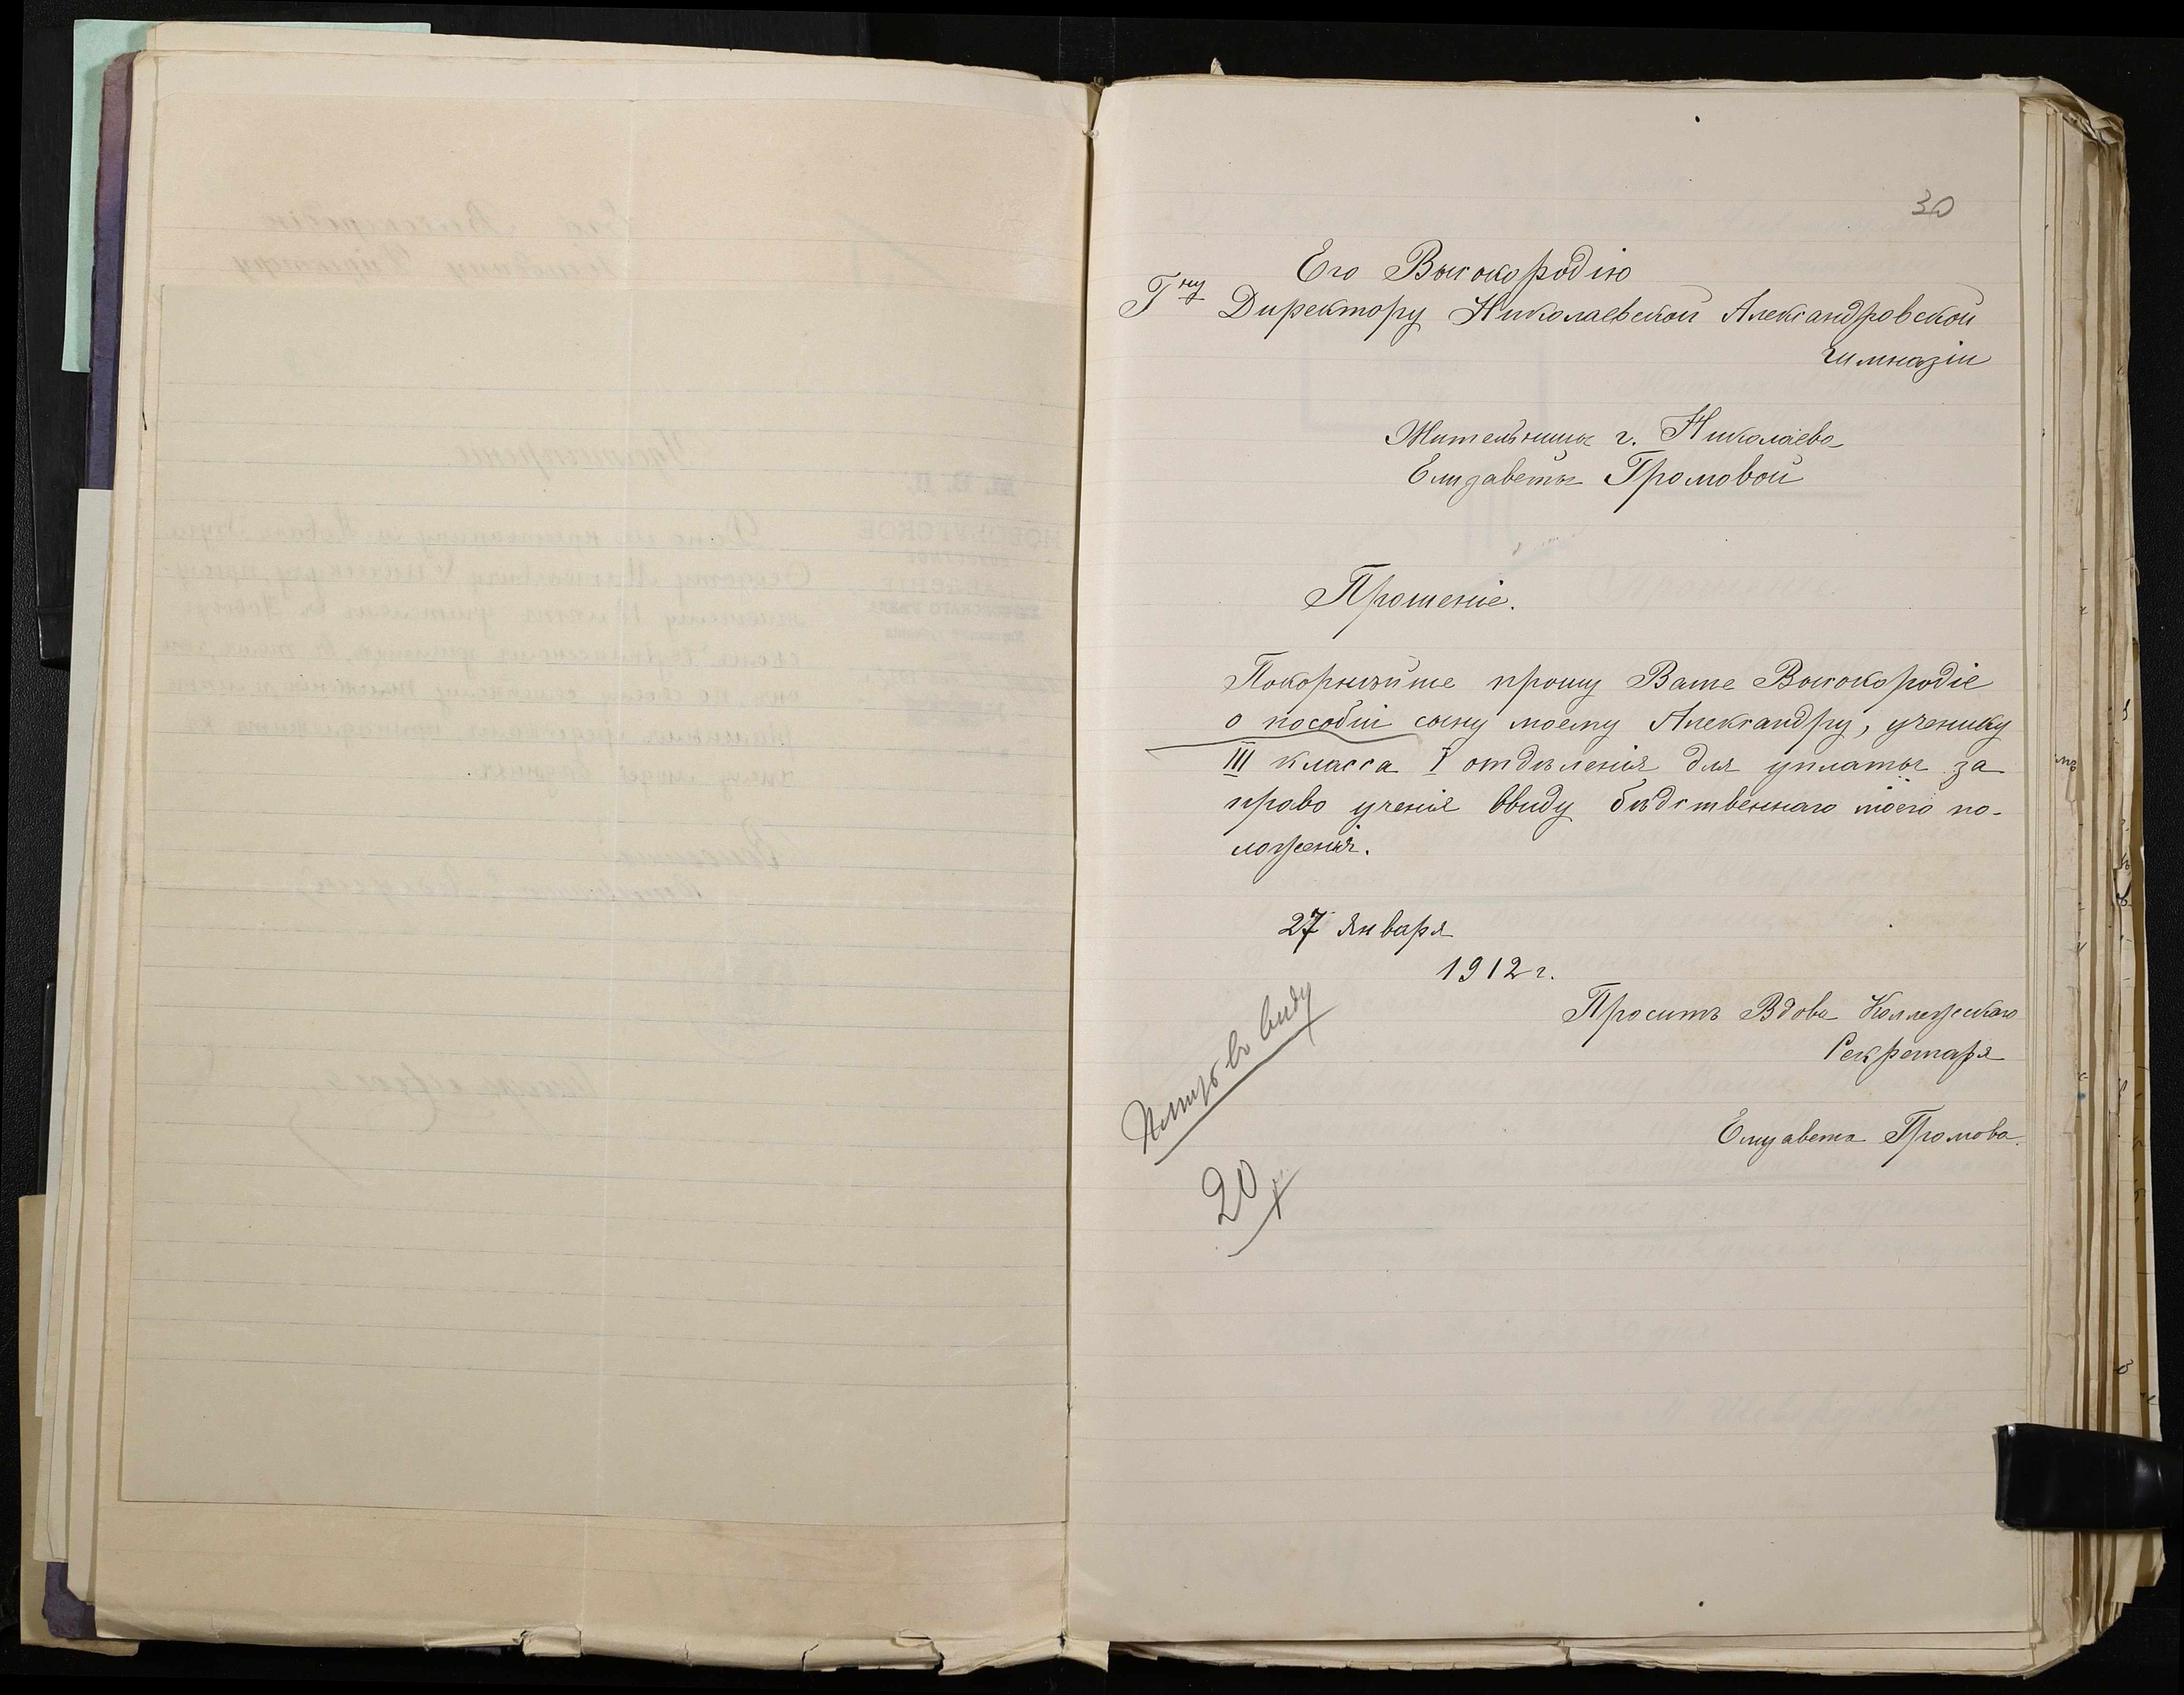 30
Его Высокородію
Г ну Директору Николаевской Александровской
гимназіи
Жительницы г. Николаева
Елизаветы Громовой
Прошеніе.
Покорнѣйше прошу Ваше Высокородіе
о пособіи сыну моему Александру, ученику
III класса I отдѣленія для уплаты за
право ученія ввиду бѣдственнаго моего по-
ложенія.
27 Января
1912 г.
Проситъ Вдова Коллежскаго
Секретаря
Елизавета Громова.
въ виду
20